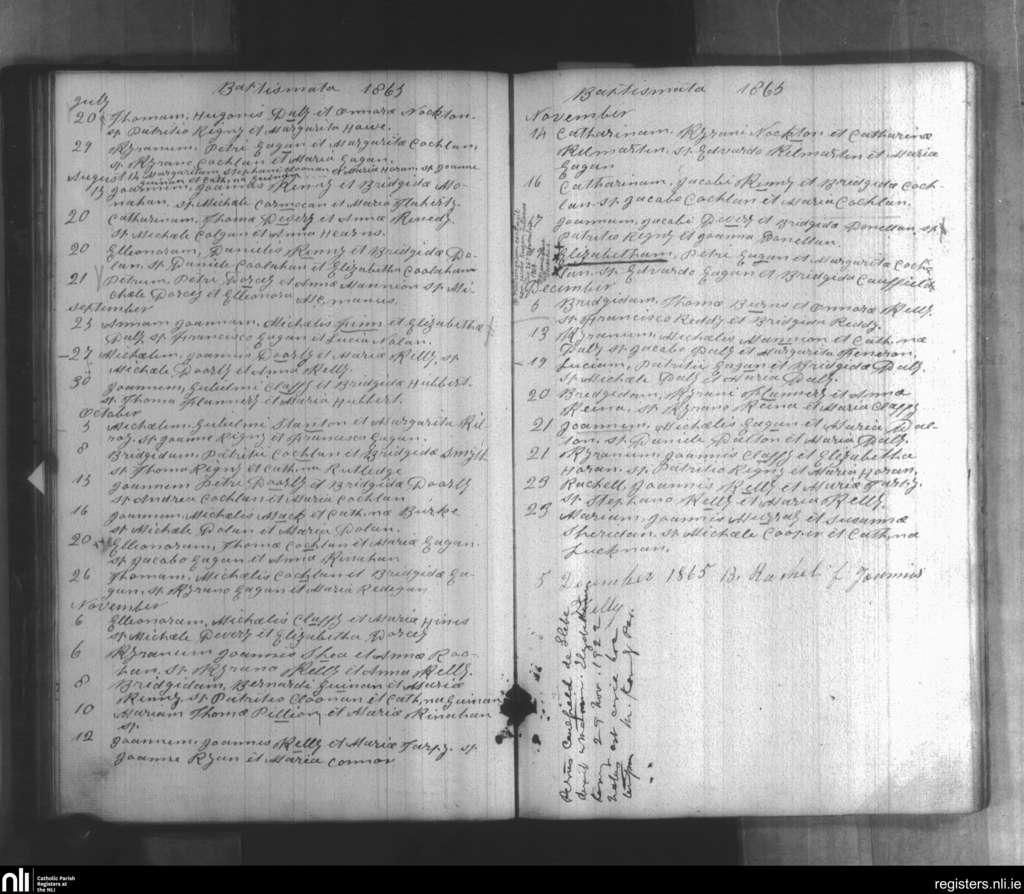 Baptismata 1865
July
20 Thomam, Hugonis Daly et Onnora Nockton.
sp Patritio Rigny et Margarita Howe.
29 Kyranum, Petri Eagan et Margarita Cochlan,
sp Kyrano Cochlan et Maria Eagan.
August 14 Margaritam Stephani Noonan et Maria Horan, sp Joanne
Guinan et Cathna Guinan
15 Joannem, Joannis Kenny et Bridgida Mo-
nahan, sp. Michale Cormocan et Maria Flaherty.
20 Catharinam, Thoma Devery et Anna Kenedy.
Sp Michale Colgan et Anna Hearns.
20 Ellionoram, Danielis Kenny et Bridgida Do-
lan, sp. Daniele Coolahan et Elizabetha Coolahan
21 Petrum, Petri Dorcey et Anna Mannion sp Mi-
chale Dorcey et Elleonora McManus.
September
23 Annam Joannam, Michælis Finn et Elizabethæ
Daly sp Francisco Eagan et Lucia Nolan.
27 Michælem, Joannis Doorly et Mariæ Kelly, sp
Michale Doorly et Anna Kelly.
30 Joannem, Gulielmi Claffy et Bridgida Hubbert.
sp Thoma Flannery et Maria Hubbert.
October
3 Michælem, Gulielmi Stanton et Margarita Kil-
roy, sp Joanne Rigny et Francisca Eagan.
8 Bridgidam, Patritii Cochlan et Bridgida Smyth
sp Thoma Rigny et Cathna Rutledge
15 Joannem Petri Doorly et Bridgida Doorly
sp Andrea Cochlan et Maria Cochlan
16 Joannem, Michælis Mack et Cathna Burke
sp Michale Dolan et Maria Dolan.
20 Ellionoram, Thoma Cochlan et Mariæ Eagan.
sp Jacobo Eagan et Anna Kinahan
26 Thomam, Michælis Cochlan et Bridgida Ea-
gan, sp Kyrano Eagan et Maria Redegan
November
6 Ellionoram, Michælis Claffy et Maria Hines
sp Michale Devery et Elizabetha Dorcey
6 Kyranum Joannis Shea et Anna Roo-
han, sp. Kyrano Kelly et Anna Kelly.
8 Bridgidam, Bernardi Guinan et Maria
Kenny sp Patritio Cloonan et Cathna Guinan
10 Mariam Thomæ Pillion et Maria Kinahan
sp.
12 Joannem, Joannis Kelly et Maria Tarpy. sp
Joanne Ryan et Maria Connor
Baptismata 1865
November
14 Catharinam, Kyrani Nockton et Catharinæ
Kilmartin. sp. Edvardo Kilmartin et Maria
Eagan
16 Catharinam, Jacobi Kenny et Bridgida Coch-
lan. sp. Jacobo Cochlan et Maria Cochlan.
17 Joannam, Jacobi Devery et Bridgida Donellan, sp
Patritio Rigny et Joanna Donellan.
Elizabetham, Petri Eagan et Margarita Coch-
lan. Sp Edvardo Eagan et Bridgida Cauffield
December
6 Bridgidam, Thomæ Burns et Onnora Kelly
sp. Francisco Reddy et Bridgida Reddy.
13 Kyranum, Michælis Mannion et Cathna
Daly sp Jacobo Daly et Margarita Feneron.
19 Luciam, Patritii Eagan et Bridgida Daly.
sp Michale Daly et Maria Daly.
20 Bridgidam, Kyrani Flannery et Anna
Keina, sp. Kyrano Keina et Maria Claffy
21 Joannem, Michælis Eagan et Maria Dal-
ton, sp. Daniele Dalton et Maria Daly.
21 Kyranum, Joannis Claffy et Elizabetha
Horan. sp. Patritio Rigny et Maria Horan.
23 Rachell, Joannis Kelly et Maria Tarpy.
sp. Stephano Kelly et Maria Kelly.
23 Mariam, Joannis Murray et Susanna
Sheridan. sp Michale Cooper et Cathna
Luckman.
5 December 1865 B. Rachel f. Joannis
Kelly
Caulfield de
29 Nov. 1922
nli
Catholic Parish
Registers at
the NLI
registers.nli.ie